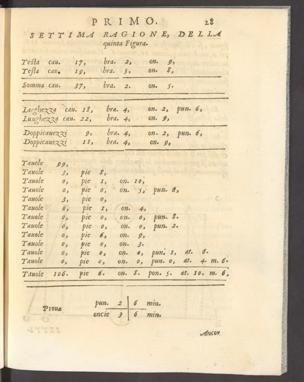 PRIMO. 28
SETTIMA RAGIONE, DELLA
quinta Figura.
Testa cau. 17, bra. 2, on. 9,
Testa cau. 19, bra. 5, on. 8,
Somma cau. 37, bra. 2. on. 5.
Larghezza cau. 18, bra. 4, on. 2, pun. 6,
Lunghezza cau. 22, bra. 4, on. 9,
Doppicauezzi 9. bra. 4, on. 2, pun. 6,
Doppicauezzi 11, bra. 4, on. 9,
Tauole 99,
Tauole 3, pie 8,
Tauole 0, pie 1, on. 10,
Tauole 0, pie 0, on. 5, pun. 6,
Tauole 3, pie 0,
Tauole 0, pie 1, on. 4,
Tauole 0, pie 0, on. 0, pun. 8.
Tauole 0, pie 0, on. 0, pun. 2.
Tauole 0, pie 6, on. 9,
Tauole 0, pie 0, on. 3.
Tauole 0, pie 0, on. 0, pun. 1, at. 6.
Tauole 0, pie 0, on. 0, pun. 0, at. 4. m. 6.
Tauole 106. pie 6. on. 8. pon. 5. at. 10. m. 6,
Proua
pun. 2 6 min.
oncie 3 6 min.
Ancor